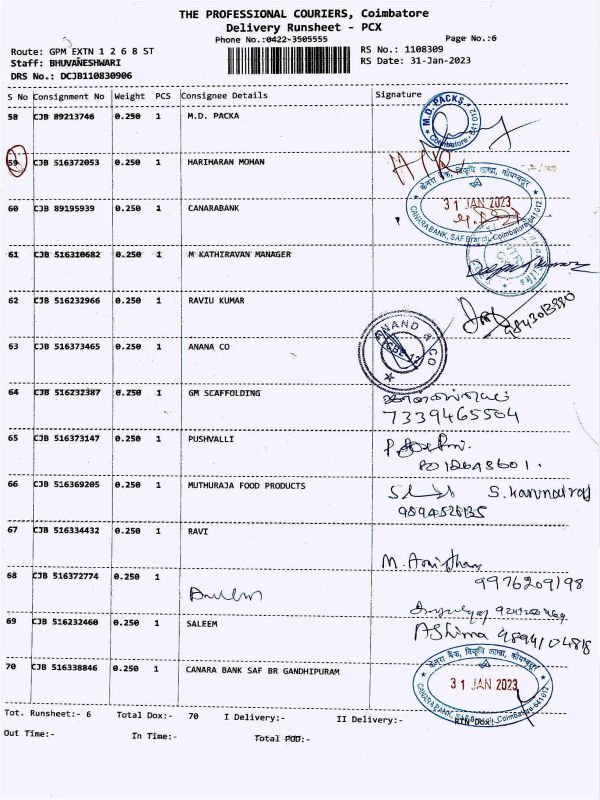 THE PROFESSIONAL COURIERS, Coimbatore
Delivery Runsheet - PCX
Phone No.:0422-3505555
Page No.:6
Route: GPM EXTN 1 2 6 8 ST
RS No.: 1108309
Staff: BHUVANESHWARI
RS Date: 31-Jan-2023
DRS No.: DCJB110830906
S No Consignment No Weight PCS Consignee Details Signature
58 CJB 89213746 0.250 1 M.D. PACKA
M.D. PACKS Coimbatore 641012
59 CJB 516372053 0.250 1 HARIHARAN MOHAN
केनरा बैंक, विकृति शाखा, कोयम्बतूर
31 JAN 2023
CANARA BANK, SAF Branch, Coimbatore-641 012
60 CJB 89195939 0.250 1 CANARABANK
61 CJB 516310682 0.250 1 M KATHIRAVAN MANAGER
62 CJB 516232966 0.250 1 RAVIU KUMAR
9843013880
63 CJB 516373465 0.250 1 ANANA CO
ANAND & CO
CBE-12
64 CJB 516232387 0.250 1 GM SCAFFOLDING
7339465504
65 CJB 516373147 0.250 1 PUSHVALLI
66 CJB 516369205 0.250 1 MUTHURAJA FOOD PRODUCTS
67 CJB 516334432 0.250 1 RAVI
9976209198
68 CJB 516372774 0.250 1
69 CJB 516232460 0.250 1 SALEEM
Ashima
70 CJB 516338846 0.250 1 CANARA BANK SAF BR GANDHIPURAM
केनरा बैंक, विकृति शाखा, कोयम्बतूर
31 JAN 2023
CANARA BANK, SAF Branch, Coimbatore-641 012
Tot. Runsheet:- 6 Total Dox:- 70 I Delivery:- II Delivery:- RTN Dox:
Out Time:- In Time:- Total POD:-